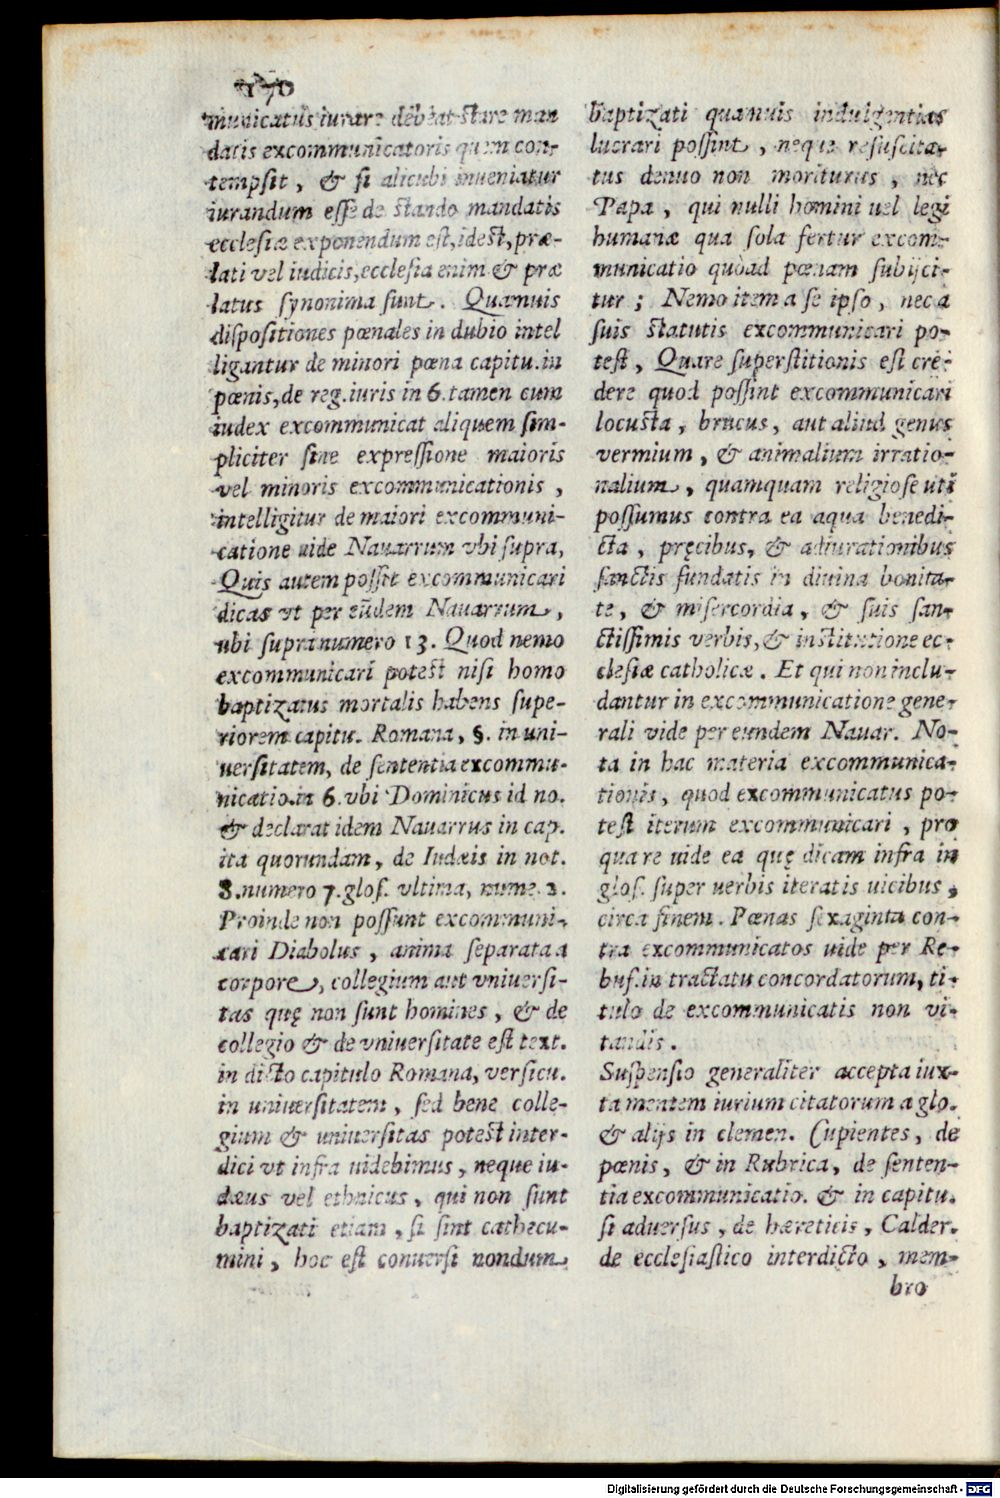 170
municatus iurare debeat stare man
datis excommunicatoris quem con-
tempsit, & si alicubi inueniatur
iurandum esse de stando mandatis
ecclesiæ exponendum est, idest, præ-
lati vel iudicis, ecclesia enim & præ
latus synonima sunt. Quamuis
dispositiones pœnales in dubio intel
ligantur de minori pœna capitu. in
pœnis, de reg. iuris in 6. tamen cum
iudex excommunicat aliquem sim-
pliciter sine expressione maioris
vel minoris excommunicationis,
intelligitur de maiori excommuni-
catione uide Nauarrum vbi supra,
Quis autem possit excommunicari
dicas vt per eũdem Nauarrum,
ubi supra numero 13. Quod nemo
excommunicari potest nisi homo
baptizatus mortalis habens supe-
riorem capitu. Romana, §. in uni-
uersitatem, de sententia excommu-
nicatio. in 6. vbi Dominicus id no.
& declarat idem Nauarrus in cap.
ita quorundam, de Iudæis in not.
8. numero 7. glos. vltima, nume. 2.
Proinde non possunt excommuni-
cari Diabolus, anima separata a
corpore, collegium aut vniuersi-
tas quę non sunt homines, & de
collegio & de vniuersitate est text.
in dicto capitulo Romana, versicu.
in uniuersitatem, sed bene colle-
gium & uniuersitas potest inter-
dici vt infra uidebimus, neque iu-
dæus vel ethnicus, qui non sunt
baptizati etiam, si sint cathecu-
mini, hoc est conuersi nondum
baptizati quamuis indulgentias
lucrari possint, neque resuscita-
tus denuo non moriturus, nec
Papa, qui nulli homini uel legi
humanæ qua sola fertur excom-
municatio quòad pœnam subijci-
tur; Nemo item a se ipso, nec a
suis statutis excommunicari po-
test, Quare superstitionis est cre-
dere quod possint excommunicari
locusta, brucus, aut aliud genus
vermium, & animalium irratio-
nalium, quamquam religiose uti
possumus contra ea aqua benedi-
cta, pręcibus, & adiurationibus
sanctis fundatis in diuina bonita-
te, & misercordia, & suis san-
ctissimis verbis, & institutione ec-
clesiæ catholicæ. Et qui non inclu-
dantur in excommunicatione gene-
rali vide per eundem Nauar. No-
ta in hac materia excommunica-
tionis, quod excommunicatus po-
test iterum excommunicari, pro
qua re uide ea quę dicam infra in
glos. super uerbis iteratis uicibus,
circa finem. Pœnas sexaginta con-
tra excommunicatos uide per Re-
buf. in tractatu concordatorum, ti-
tulo de excommunicatis non vi-
tandis.
Suspensio generaliter accepta iux-
ta mentem iurium citatorum a glo.
& alijs in clemen. Cupientes, de
pœnis, & in Rubrica, de senten-
tia excommunicatio. & in capitu.
si aduersus, de hæreticis, Calder.
de ecclesiastico interdicto, mem-
bro
Digitalisierung gefördert durch die Deutsche Forschungsgemeinschaft - DFG